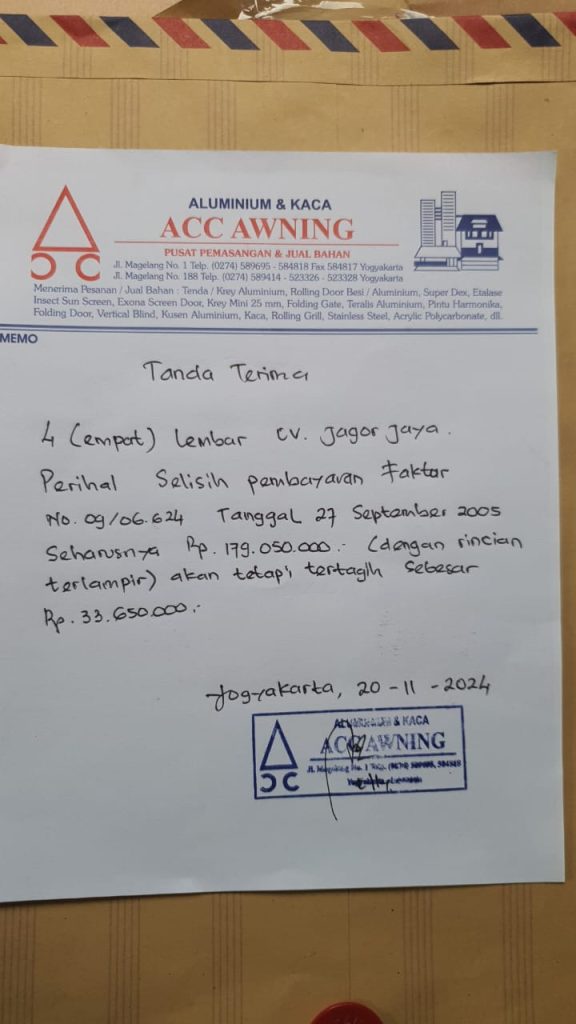 ALUMINIUM & KACA
ACC AWNING
PUSAT PEMASANGAN & JUAL BAHAN
Jl. Magelang No. 1 Telp. (0274) 589695 - 584818 Fax 584817 Yogyakarta
Jl. Magelang No. 188 Telp. (0274) 589414 - 523326 - 523328 Yogyakarta
Menerima Pesanan / Jual Bahan : Tenda / Krey Aluminium, Rolling Door Besi / Aluminium, Super Dex, Etalase
Insect Sun Screen, Exona Screen Door, Krey Mini 25 mm, Folding Gate, Teralis Aluminium, Pintu Harmonika,
Folding Door, Vertical Blind, Kusen Aluminium, Kaca, Rolling Grill, Stainless Steel, Acrylic Polycarbonate, dll.
MEMO
Tanda Terima
4 (empat) lembar CV. Jagor Jaya.
Perihal Selisih pembayaran Faktor
No. 09/06.624 Tanggal 27 September 2005
Seharusnya Rp. 179.050.000.- (dengan rincian
terlampir) akan tetapi tertagih sebesar
Rp. 33.650.000.-
Yogyakarta, 20-11-2024
ALUMINIUM & KACA
ACC AWNING
Jl. Magelang No. 1 Telp. (0274)